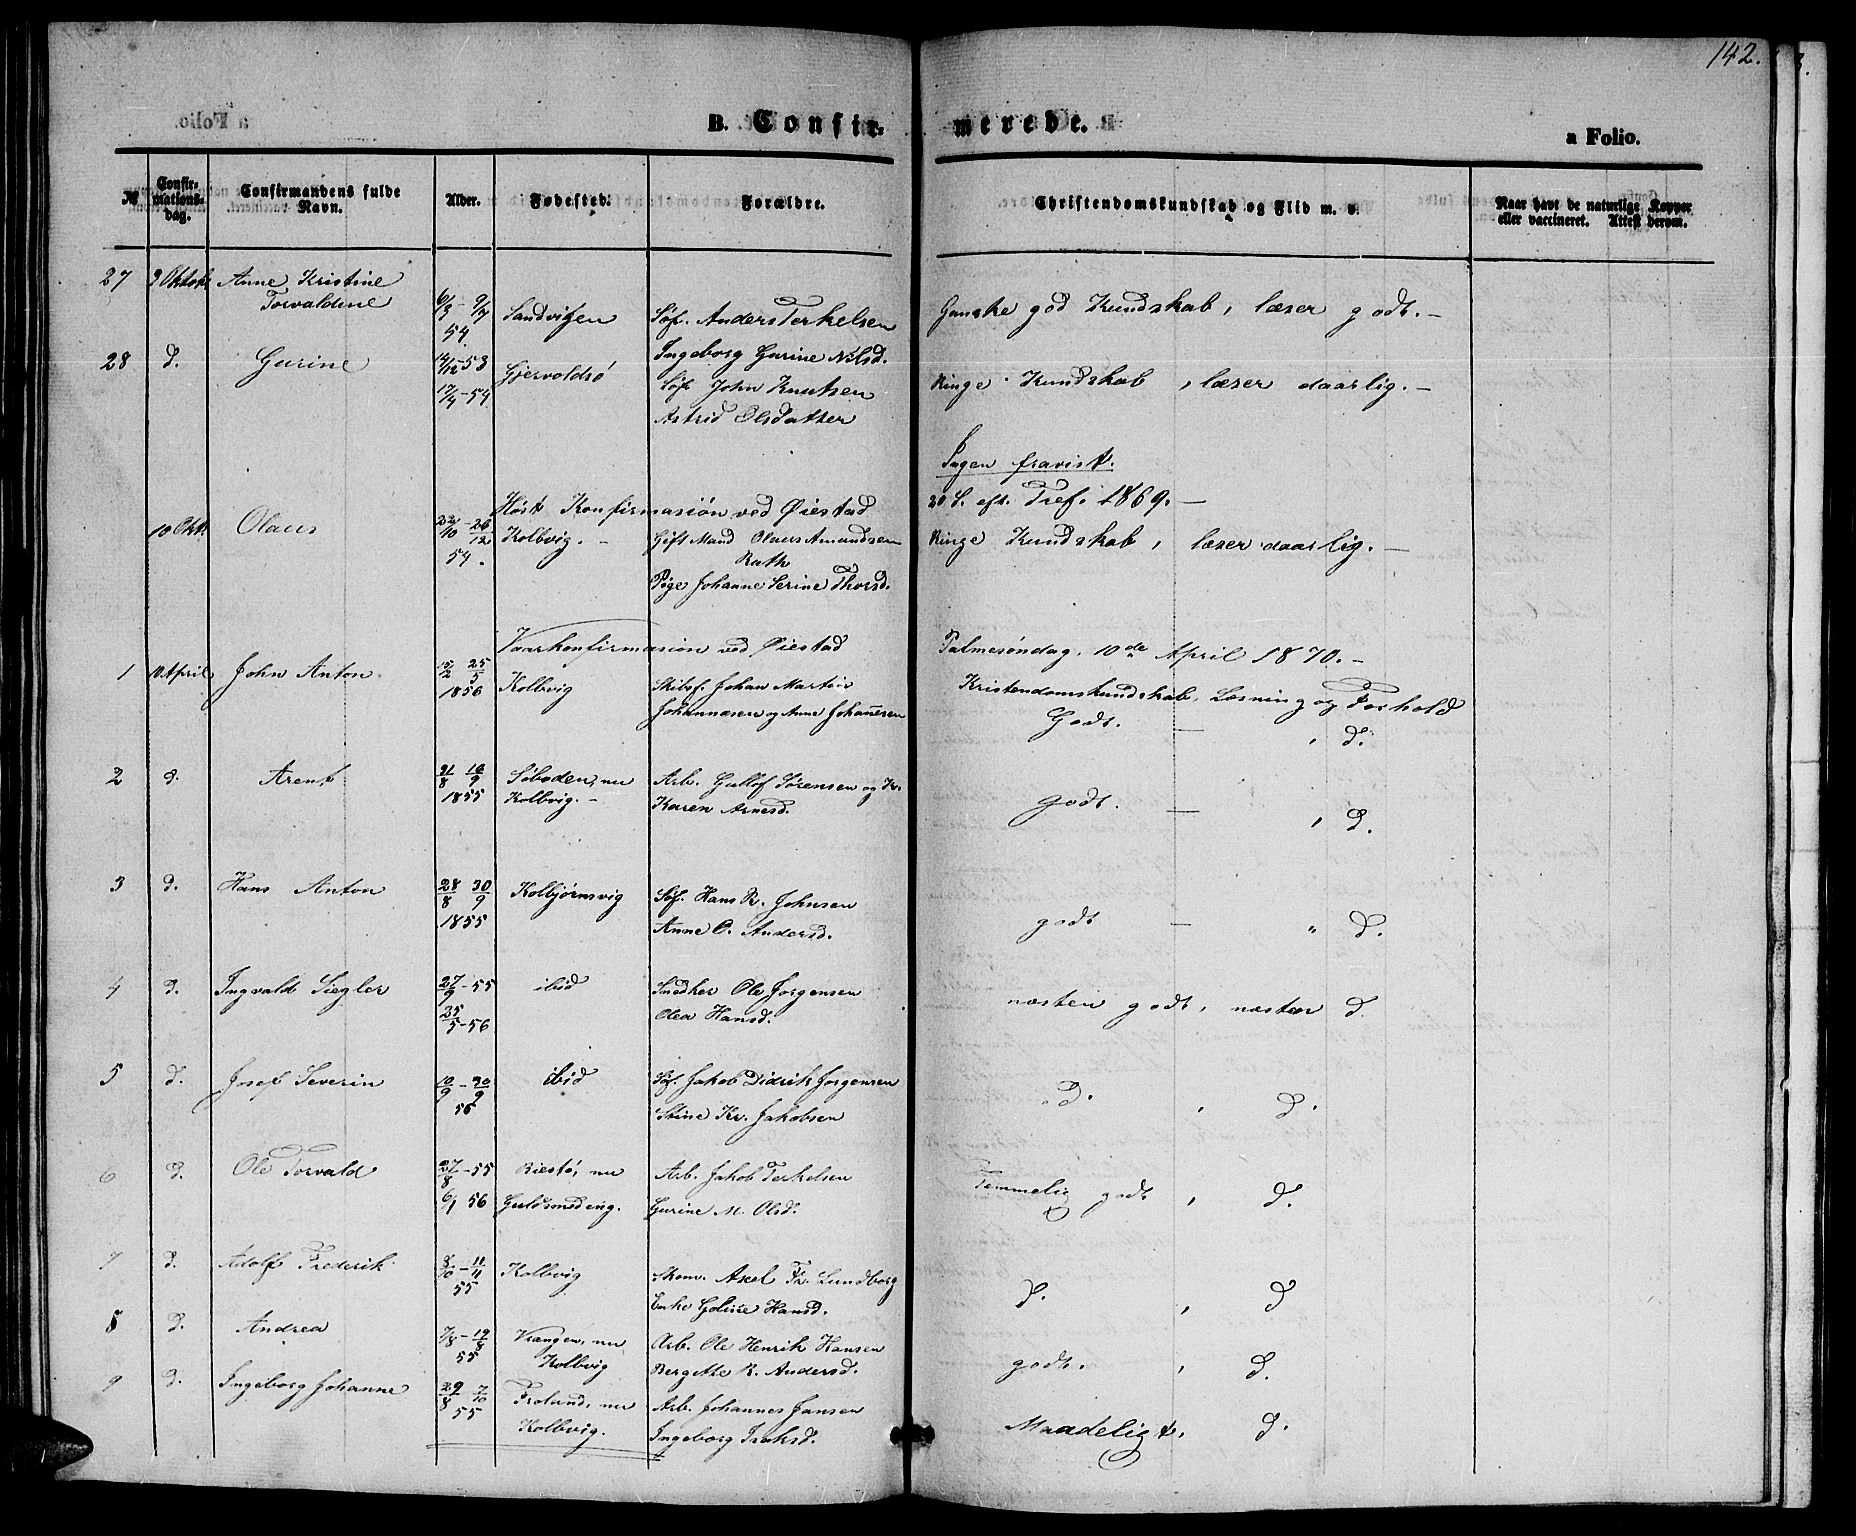 142.
B. Confir-
merede.
a Folio.
№
Confir-
mations-
dag.
Confirmandens fulde
Navn.
Alder.
Fødested.
Forældre.
Christendomskundskab og Flid m. v.
Naar havt de naturlige Kopper
eller vaccineret. Attest derom.
27 3 Oktob. Anne Kristine
Torvaldine
6/3 - 9/7
54. Sandvigen Søf. Anders Terkelsen Ganske god Kundskab, læser godt. -
Ingeborg Gurine Nilsd.
28 d. Gurine 14/12-53 Gjervoldsø
17/4-54. Søf. John Knutsen Ringe Kundskab, læser daarlig. -
Astrid Olsdatter
Ingen fravist.
Høst Konfirmasion ved Øiestad 20 S. eft. Tref. 1869. -
10 Okt. Olaus 22/10 - 26/12 Kolbvig. - Gift Mand Olaus Amundsen Ringe Kundskab, læser daarlig. -
54. Rath
Pige Johanne Serine Thorsd.
Vaarkonfirmasion ved Øiestad Palmesøndag, 10de April 1870. -
1 10 April John Anton. 15/2 25/5 Kolbvig Skibsf. Johan Martin Kristendomskundskab, Læsning og Forhold
1856 Johannesen og Anne Johannesen Godt. - , d.
2 d. Arent 31/8 16/9 Søboden, nu Arb. Gullof Sørensen og K.
1855 Kolbvig. - Karen Arnesd. godt. - , d.
3 d. Hans Anton 28/8 30/9 Kolbjørnsvig Søf. Hans R. Johnsen
1855 Anne O. Andersd. godt - " d.
4 d. Ingvald Siegler 27/9-55 ibid Snedker Ole Jorgensen næsten godt, næsten d.
25/5-56 Olea Hansd.
5 d. Josef Severin 10/9 - 30/9 ibid Søf. Jakob Didrik Jorgensen d. , d.
56 Stine Kr. Jakobsen
6 d. Ole Torvald 27/8-55 Riestø, nu Arb. Jakob Terkelsen Temmelig godt , d.
6/1 56 Guldsmedeng. Gurine M. Olsd.
7 d. Adolf Frederik 8/10 - 11/11 Kolbvig Skom. Axel Fr. Lundborg d. , d
55 Enke Goline Hansd.
8 d. Andrea 7/8 - 19/8 Vrangen, nu Arb. Ole Henrik Hansen godt. , d.
55 Kolbvig Bergitte R. Andersd.
9 d. Ingeborg Johanne 29/8 7/10 Froland, nu Arb. Johannes Jansen Maadeligt, d.
55 Kolbvig. Ingeborg Isaksd.